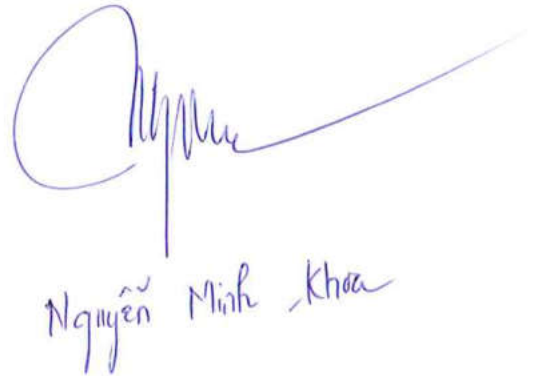 Nguyễn Minh Khoa